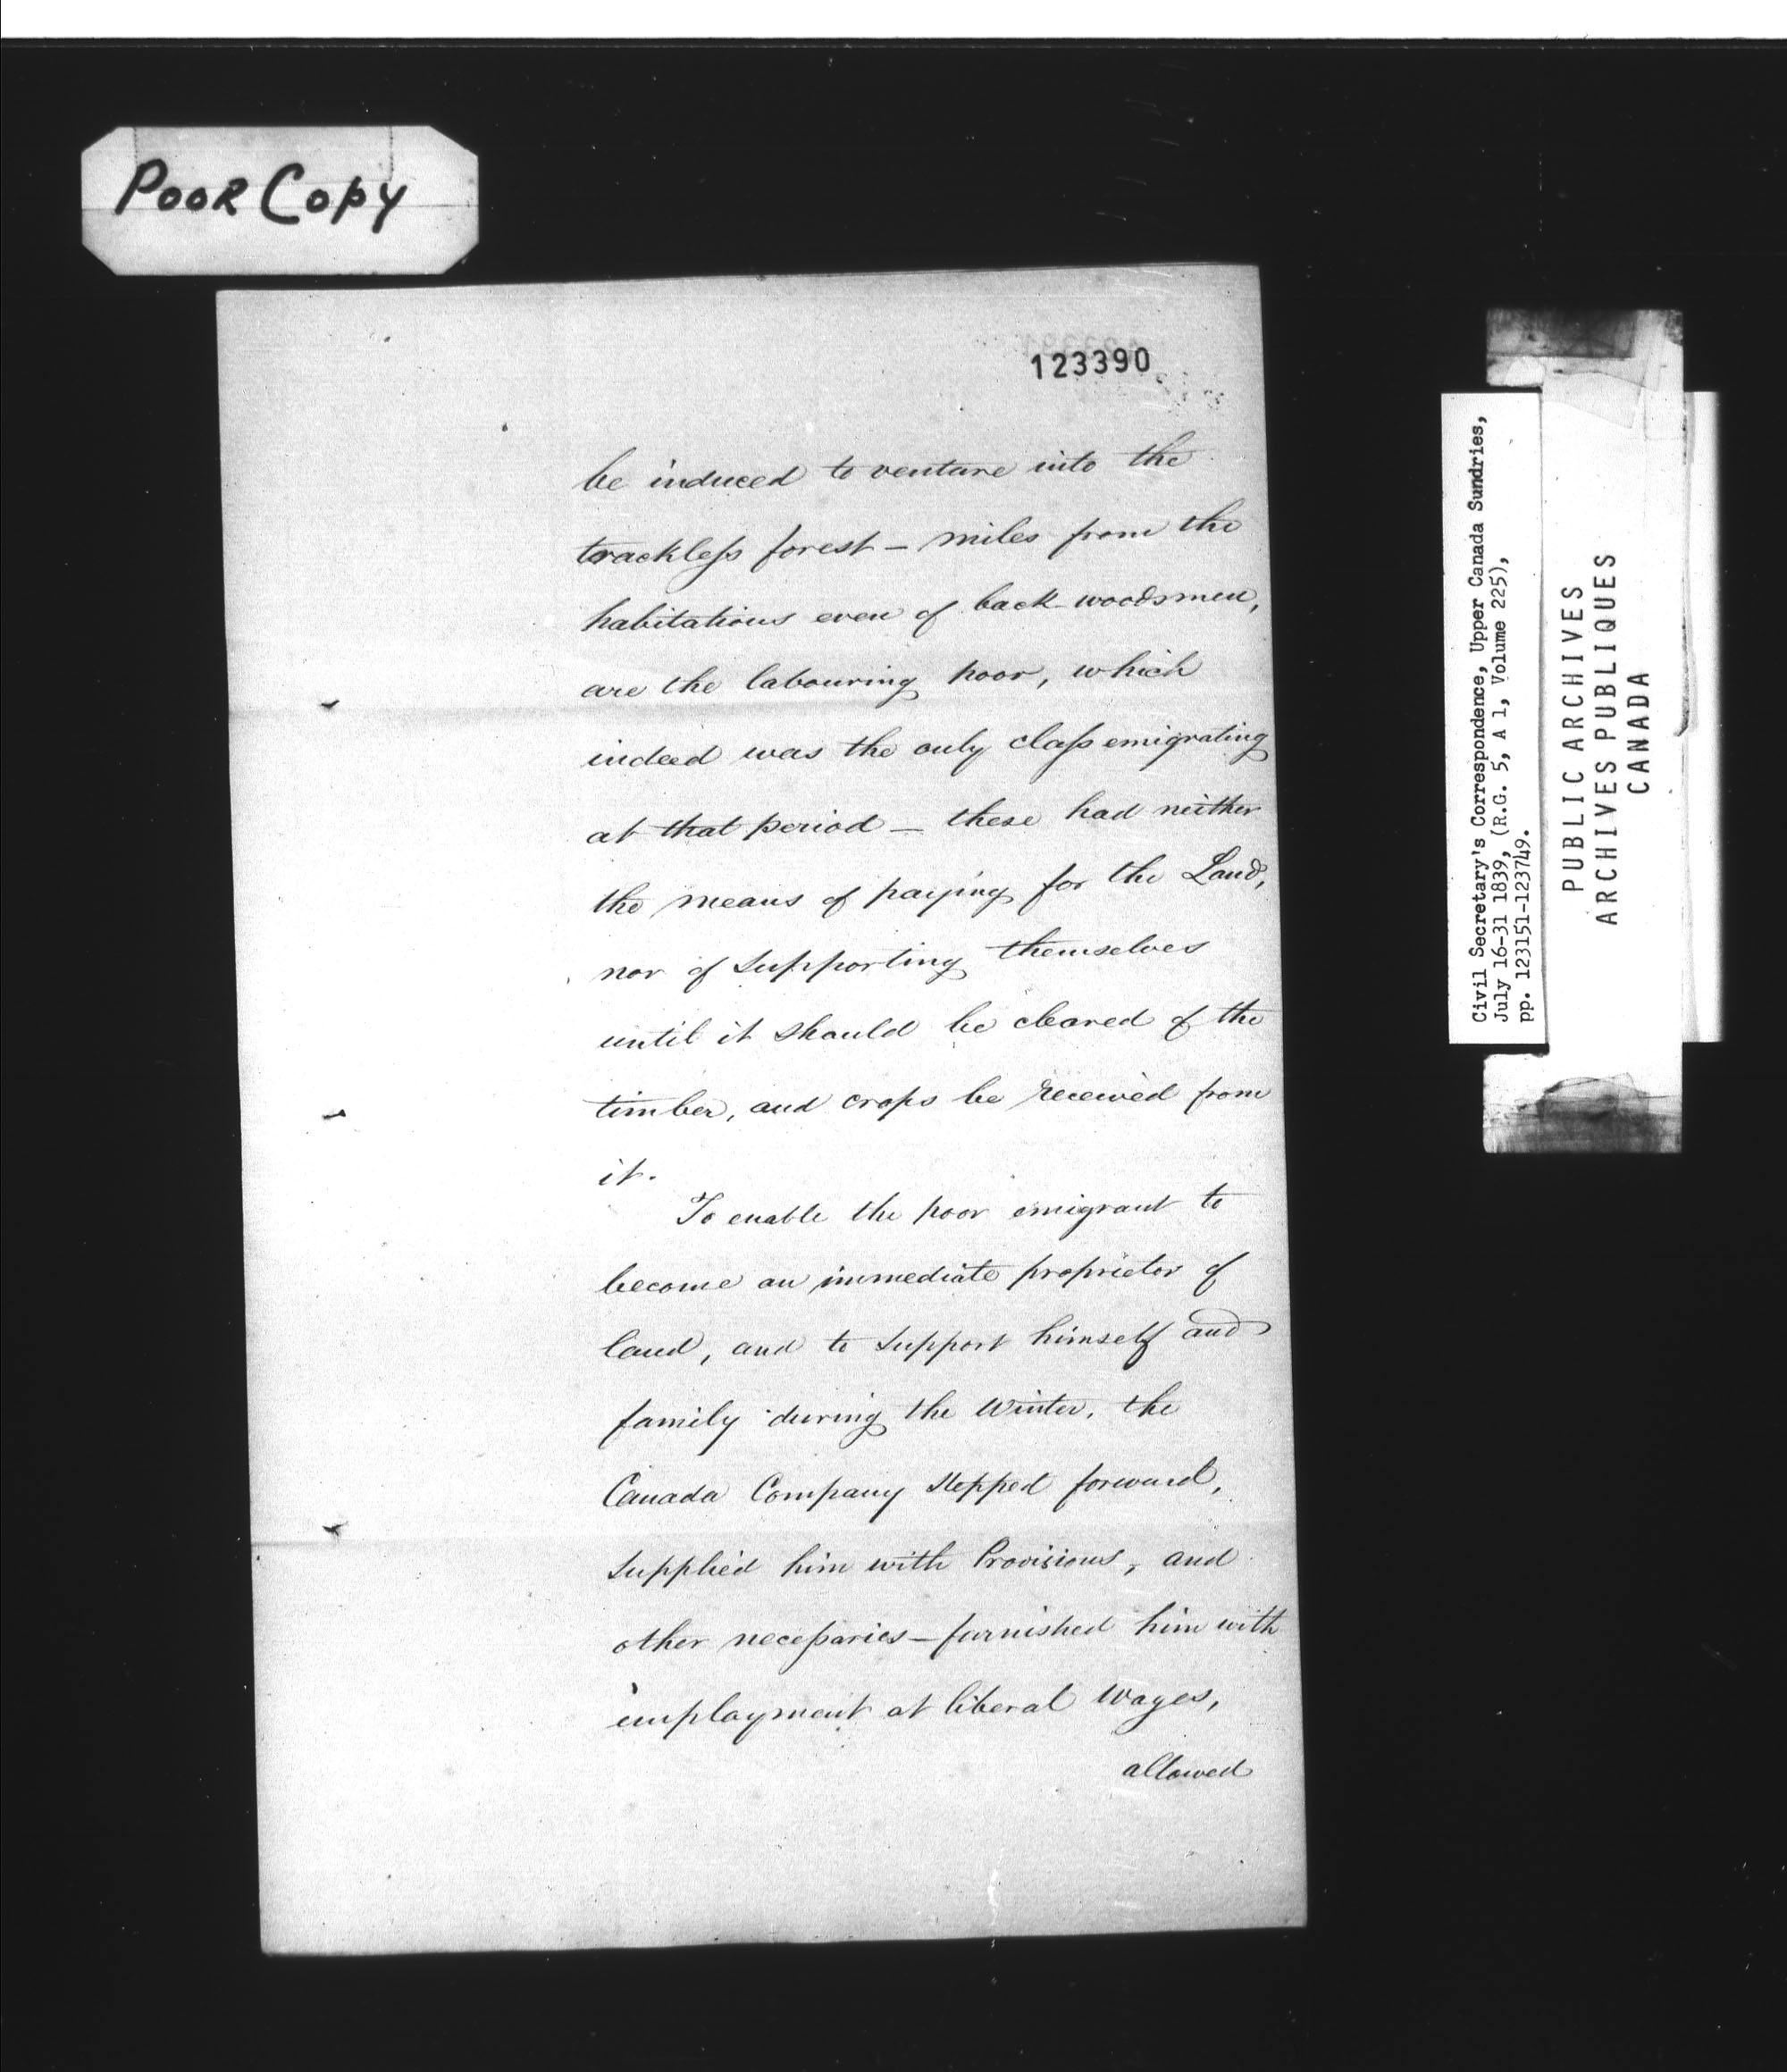 POOR COPY
123390
be induced to venture into the
trackless forest — miles from the
habitations even of back-woodsmen,
are the labouring poor, which
indeed was the only class emigrating
at that period — these had neither
the means of paying for the Land,
nor of supporting themselves
until it should be cleared of the
timber, and crops be received from
it.
To enable the poor emigrant to
become an immediate proprietor of
land, and to support himself and
family during the Winter, the
Canada Company stepped forward,
supplied him with Provisions, and
other necessaries — furnished him with
employment at liberal Wages,
allowed
Civil Secretary's Correspondence, Upper Canada Sundries,
July 16-31 1839, (R.G. 5, A 1, Volume 225),
pp. 123151-123749.
PUBLIC ARCHIVES
ARCHIVES PUBLIQUES
CANADA